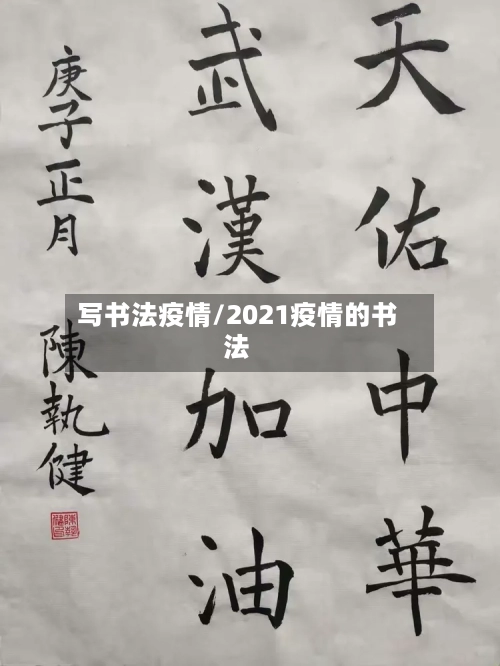 天佑中華
武漢加油
庚子正月
陳執健
写书法疫情/2021疫情的书
法